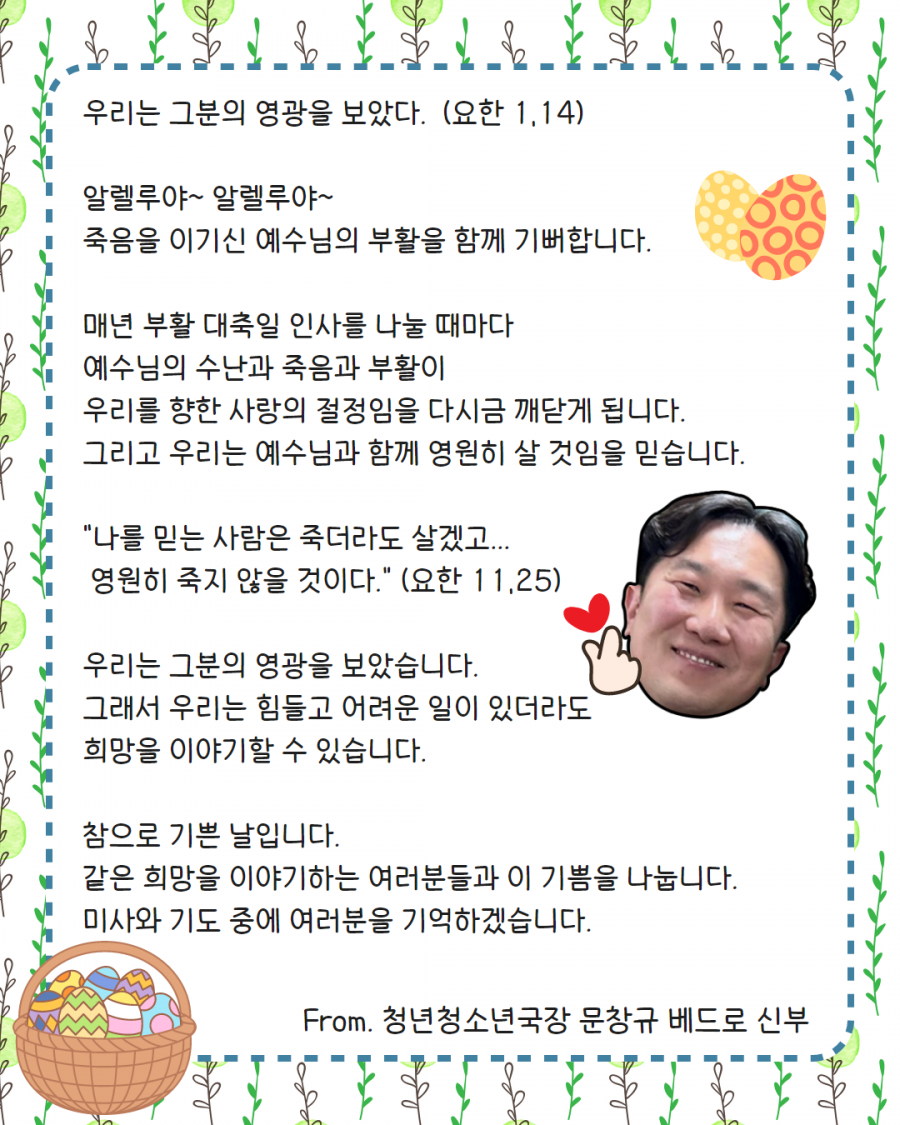 우리는 그분의 영광을 보았다. (요한 1,14)
알렐루야~ 알렐루야~
죽음을 이기신 예수님의 부활을 함께 기뻐합니다.
매년 부활 대축일 인사를 나눌 때마다
예수님의 수난과 죽음과 부활이
우리를 향한 사랑의 절정임을 다시금 깨닫게 됩니다.
그리고 우리는 예수님과 함께 영원히 살 것임을 믿습니다.
"나를 믿는 사람은 죽더라도 살겠고...
영원히 죽지 않을 것이다." (요한 11,25)
우리는 그분의 영광을 보았습니다.
그래서 우리는 힘들고 어려운 일이 있더라도
희망을 이야기할 수 있습니다.
참으로 기쁜 날입니다.
같은 희망을 이야기하는 여러분들과 이 기쁨을 나눕니다.
미사와 기도 중에 여러분을 기억하겠습니다.
From. 청년청소년국장 문창규 베드로 신부